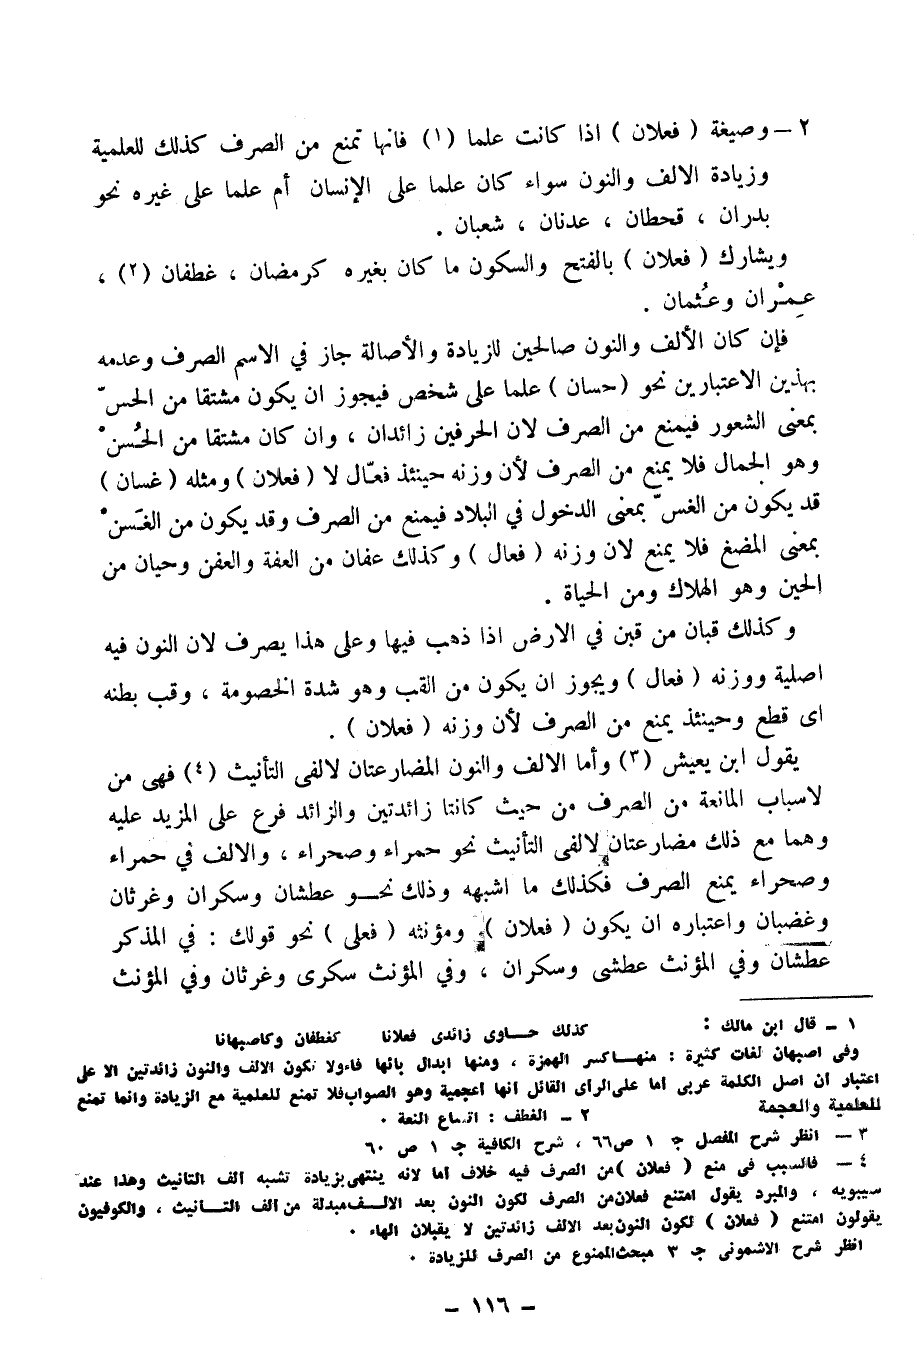 ٢ – وصيغة ( فعلان ) اذا كانت علما (١) فانها تمنع من الصرف كذلك للعلمية
وزيادة الالف والنون سواء كان علما على الإنسان أم علما على غيره نحو
بدران ، قحطان ، عدنان ، شعبان .
ويشارك ( فعلان ) بالفتح والسكون ما كان بغيره كرمضان ، غطفان (٢) ،
عِمْران وعُثمان .
فإن كان الألف والنون صالحين للزيادة والأصالة جاز في الاسم الصرف وعدمه
بهذين الاعتبارين نحو ( حسان ) علما على شخص فيجوز ان يكون مشتقا من الحسّ
بمعنى الشعور فيمنع من الصرف لان الحرفين زائدان ، وان كان مشتقا من الحُسنْ
وهو الجمال فلا يمنع من الصرف لأن وزنه حينئذ فعّال لا ( فعلان ) ومثله ( غسان )
قد يكون من الغسّ بمعنى الدخول في البلاد فيمنع من الصرف وقد يكون من الغَسنْ
بمعنى المضغ فلا يمنع لان وزنه ( فعال ) وكذلك عفان من العفة والعفن وحيان من
الحين وهو الهلاك ومن الحياة .
وكذلك قبان من قبن في الارض اذا ذهب فيها وعلى هذا يصرف لان النون فيه
اصلية ووزنه ( فعال ) ويجوز ان يكون من القب وهو شدة الخصومة ، وقب بطنه
اى قطع وحينئذ يمنع من الصرف لأن وزنه ( فعلان ) .
يقول ابن يعيش (٣) وأما الالف والنون المضارعتان لالفى التأنيث (٤) فهى من
لاسباب المانعة من الصرف من حيث كانتا زائدتين والزائد فرع على المزيد عليه
وهما مع ذلك مضارعتان لالفى التأنيث نحو حمراء وصحراء ، والالف في حمراء
وصحراء يمنع الصرف فكذلك ما اشبهه وذلك نحـــو عطشان وسكران وغرثان
وغضبان واعتباره ان يكون ( فعلان ) ومؤنثه ( فعلى ) نحو قولك : في المذكر
عطشان وفي المؤنث عطشى وسكران ، وفي المؤنث سكرى وغرثان وفي المؤنث
١ – قال ابن مالك : كذلك حـــاوى زائدى فعلانا كغطفان وكاصبهانا
وفى اصبهان لغات كثيرة : منهـــا كسر الهمزة ، ومنها ابدال بائها فاء ولا تكون الالف والنون زائدتين الا على
اعتبار أن اصل الكلمة عربى أما على الرأى القائل انها أعجمية وهو الصواب فلا تمنع للعلمية مع الزيادة وانما تمنع
للعلمية والعجمة
٢ – الغطف : اتساع النعة .
٣ – انظر شرح المفصل جـ ١ ص٦٦ ، شرح الكافية جـ ١ ص ٦٠
٤ – فالسبب فى منع ( فعلان ) من الصرف فيه خلاف اما لانه ينتهى بزيادة تشبه ألف التانيث وهذا عند
سيبويه ، والمبرد يقول امتنع فعلان من الصرف لكون النون بعد الالـــف مبدلة من ألف التـــانيث ، والكوفيون
يقولون امتنع ( فعلان ) لكون النون بعد الالف زائدتين لا يقبلان الهاء .
انظر شرح الاشمونى جـ ٣ مبحث الممنوع من الصرف للزيادة .
– ١١٦ –